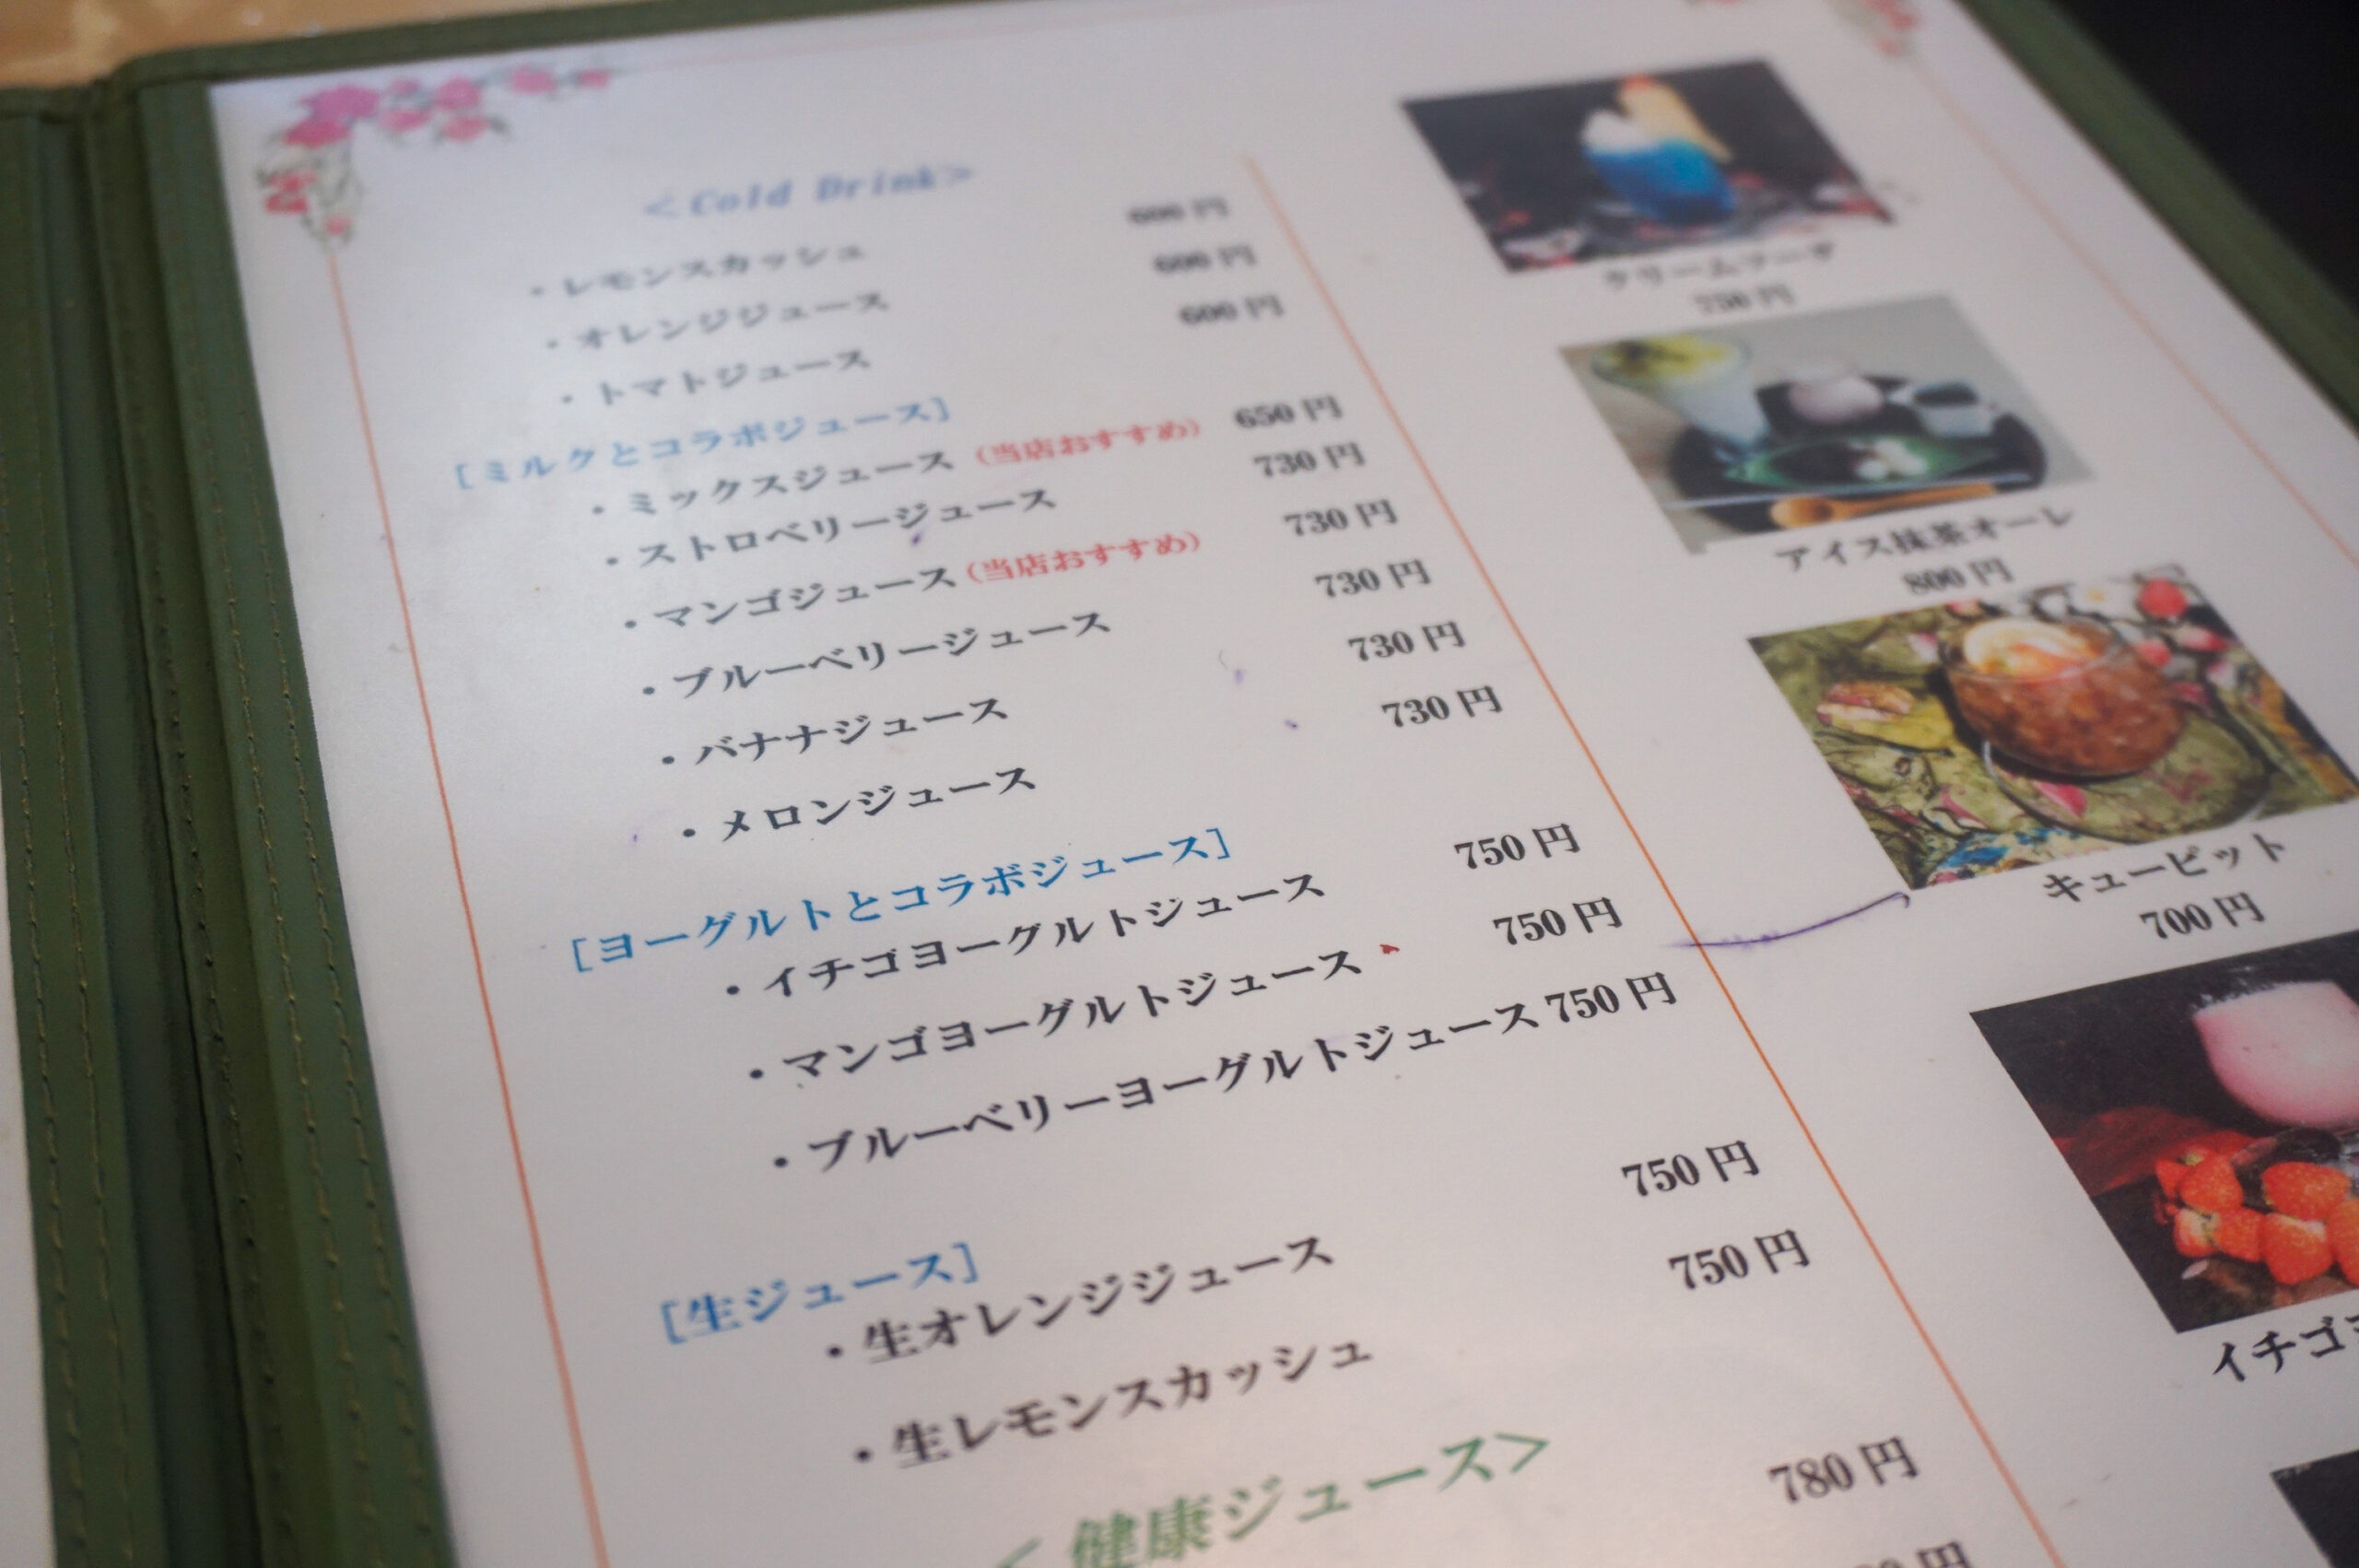 <Cold Drink>
・レモンスカッシュ 600円
・オレンジジュース 600円
・トマトジュース 600円
[ミルクとコラボジュース]
・ミックスジュース (当店おすすめ) 650円
・ストロベリージュース 730円
・マンゴジュース (当店おすすめ) 730円
・ブルーベリージュース 730円
・バナナジュース 730円
・メロンジュース 730円
[ヨーグルトとコラボジュース]
・イチゴヨーグルトジュース 750円
・マンゴヨーグルトジュース 750円
・ブルーベリーヨーグルトジュース 750円
[生ジュース]
・生オレンジジュース 750円
・生レモンスカッシュ 750円
<健康ジュース>
780円
クリームソーダ
750円
アイス抹茶オーレ
800円
キューピット
700円
イチゴヨ